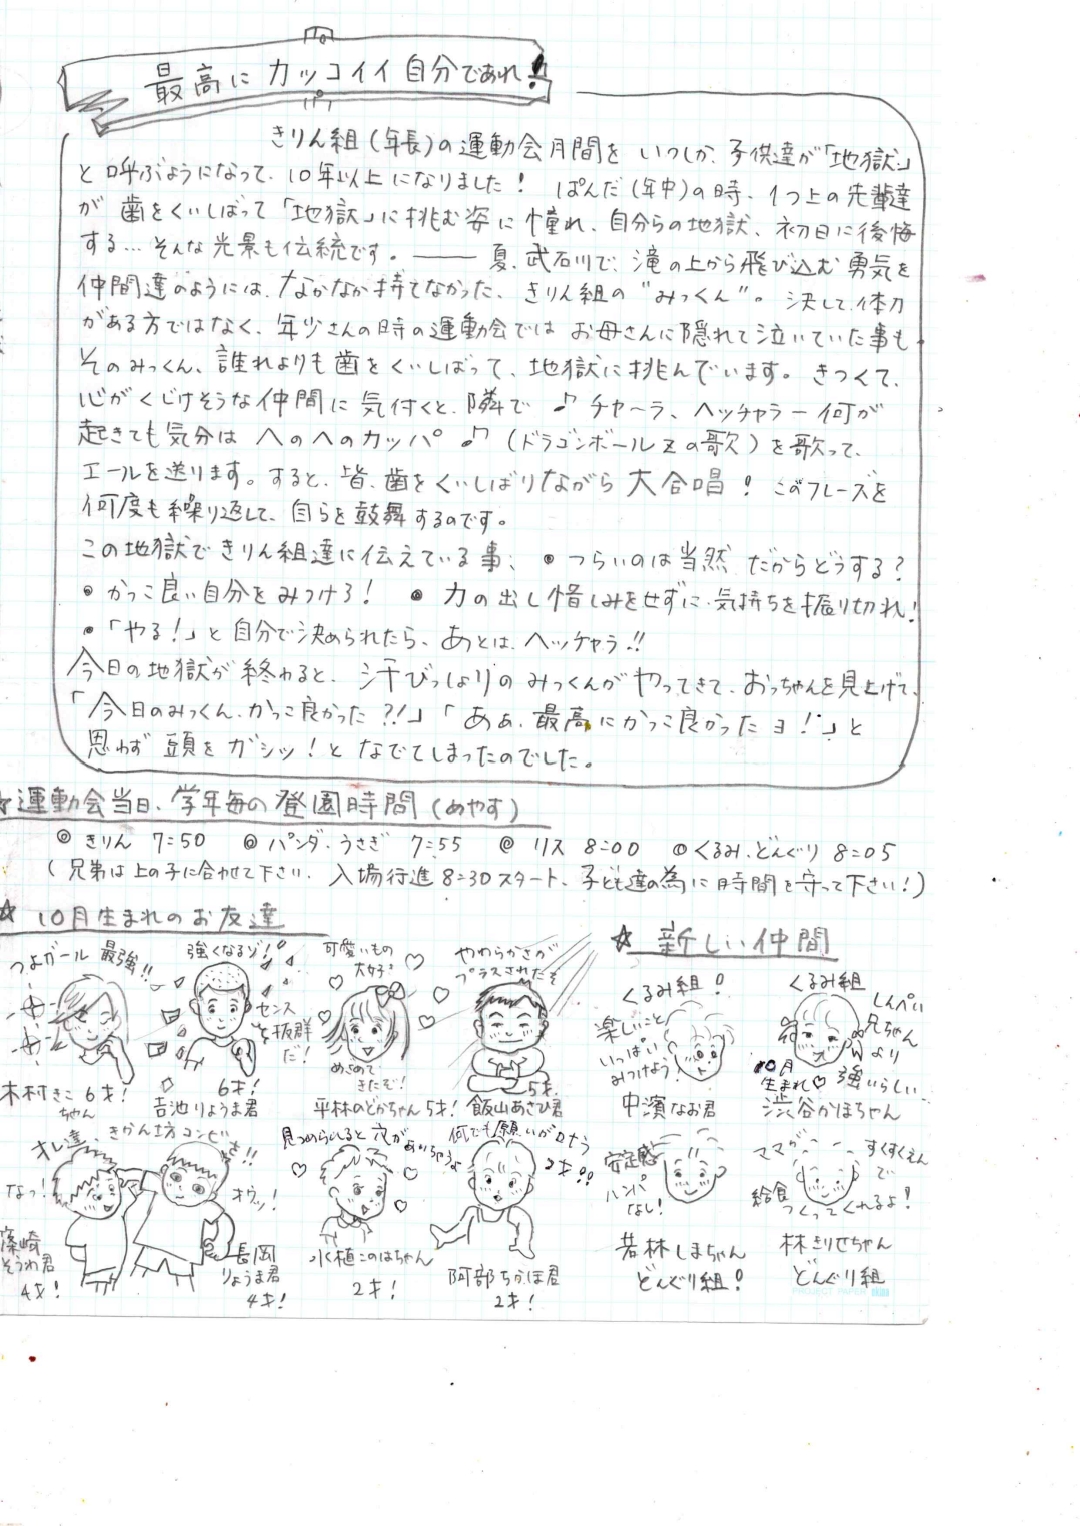 最高に カッコイイ 自分であれ!
きりん組(年長)の運動会月間を いつしか、子供達が「地獄」
と呼ぶようになって、10年以上になりました! ぱんだ(年中)の時、1つ上の先輩達
が 歯をくいしばって「地獄」に挑む姿に憧れ、自分らの地獄、初日に後悔
する… そんな光景も伝統です。 ―― 夏、武石川で、滝の上から飛び込む勇気を
仲間達のようには、なかなか持てなかった、きりん組の"みっくん"。 決して、体力
がある方ではなく、年少さんの時の運動会では お母さんに隠れて泣いていた事も
そのみっくん、誰れよりも歯をくいしばって、地獄に挑んでいます。 きつくて、
心がくじけそうな仲間に 気付くと、隣で ♪ チャ〜ラ、ヘッチャラー 何が
起きても気分は へのへのカッパ ♪ (ドラゴンボールZの歌)を歌って、
エールを送ります。すると、皆、歯をくいしばりながら 大合唱! このフレーズを
何度も繰り返して、自らを鼓舞するのです。
この地獄できりん組達に伝えている事、 ● つらいのは当然 だからどうする?
● かっこ良い自分をみつけろ! ● 力の出し惜しみをせずに、気持ちを振り切れ!
● 「やる!」と自分で決められたら、あとは、ヘッチャラ!!
今日の地獄が終わると、汗びっしょりの みっくんが やってきて、おっちゃんを見上げて、
「今日のみっくん、かっこ良かった?!」「あぁ、最高にかっこ良かったョ!」と
思わず 頭を ガシッ! と なでてしまったのでした。
☆運動会当日、学年毎の登園時間(めやす)
◎ きりん 7:50 ◎ パンダ、うさぎ 7:55 ◎ リス 8:00 ◎ くるみ、どんぐり 8:05
(兄弟は上の子に合せて下さい、入場行進8:30スタート、子ども達の為に時間を守って下さい!)
☆ 10月生まれのお友達
つよガール 最強!!
木村きこちゃん 6才!
強くなるゾ!
センスも抜群だ!
6才!
吉池りょうま君
可愛いもの
大好き
めざめて
きたぞ!
平林のどかちゃん 5才!
やわらかさが
プラスされたぞ
5才、
飯山あさひ君
オレ達、きかん坊コンビ
なっ!
篠崎
そうわ君
4才!
オウッ!
長岡
りょうま君
4才!
見つめられると穴があいちゃうよ
水植このはちゃん
2才!
何でも願いが叶う
2才!!
阿部ちかほ君
2才!
☆ 新しい仲間
くるみ組!
楽しいこと
いっぱい
みつけよう!
中濱なお君
くるみ組
しんぺい
兄ちゃん
より
強いらしい…
10月
生まれ♡
渋谷かほちゃん
安定感
ハンパ
なし!
若林しまちゃん
どんぐり組!
ママが
すくすくえん
で
給食
つくってくれるよ!
林きりせちゃん
どんぐり組
PROJECT PAPER